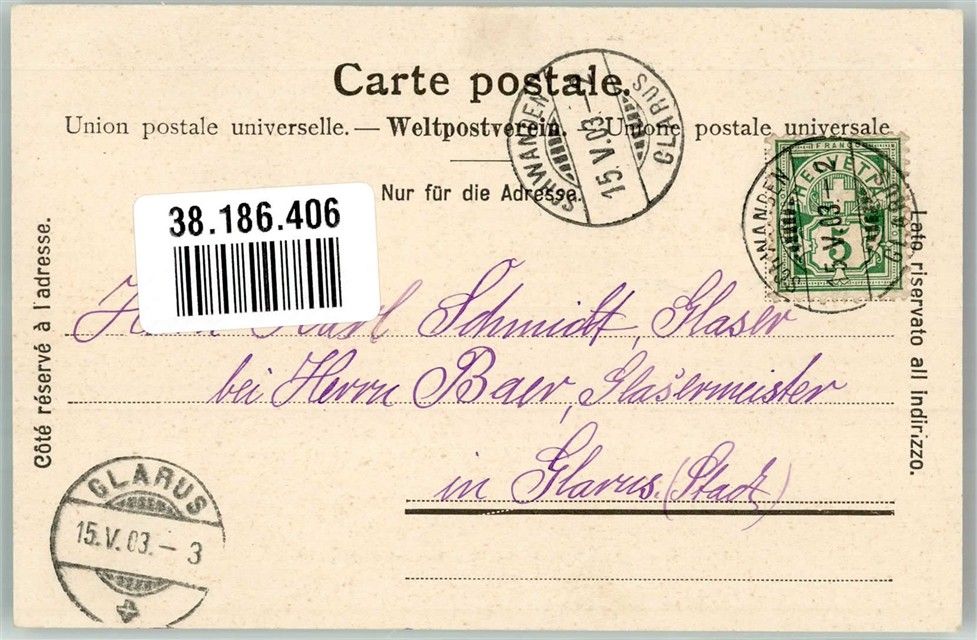 Carte postale.
Union postale universelle. — Weltpostverein. — Unione postale universale
Nur für die Adresse.
SCHWANDEN
15.V.03.-2
GLARUS
FRANCO
HELVETIA
5
SCHWANDEN
15.V.03.-2
GLARUS
38.186.406
Côté réservé à l'adresse.
Lato riservato all indirizzo.
Herrn Karl Schmidt, Glaser
bei Herrn Baer, Glasermeister
in Glarus. (Stadt)
GLARUS
15.V.03.-3